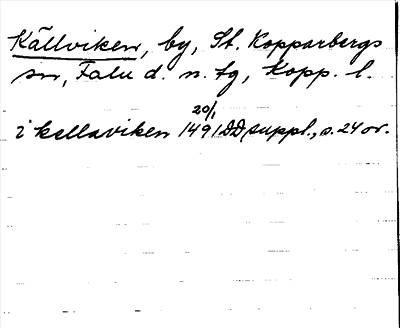 Källviken, by, St. Kopparbergs
sn, Falu d. n. tg, Kopp. l.
20/1
i kellaviken 1491 DD suppl., s. 24 or.